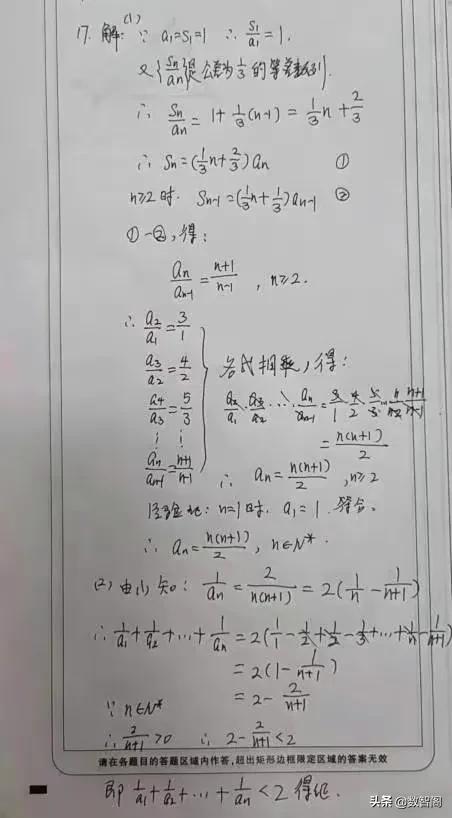 17. 解:(1) ∵ a₁=S₁=1 ∴ S₁/a₁=1.
又{Sn/an}是公差为1/3的等差数列.
∴ Sn/an=1+1/3(n-1)=1/3n+2/3
∴ Sn=(1/3n+2/3)an ①
n≥2时. Sn-1=(1/3n+1/3)an-1 ②
①-②,得:
an/an-1=n+1/n-1 , n≥2.
∴ a₂/a₁=3/1
a₃/a₂=4/2
a₄/a₃=5/3
⋮ ⋮
an/an-1=n+1/n-1
各式相乘,得:
a₂/a₁·a₃/a₂·…·an/an-1=3/1·4/2·5/3…n/n-2·n+1/n-1
=n(n+1)/2
∴ an=n(n+1)/2 , n≥2
经验证: n=1时. a₁=1. 符合.
∴ an=n(n+1)/2, n∈N*.
(2) 由(1)知: 1/an=2/n(n+1)=2(1/n-1/n+1)
∴ 1/a₁+1/a₂+…+1/an=2(1/1-1/2+1/2-1/3+…+1/n-1/n+1)
=2(1-1/n+1)
=2-2/n+1
∵ n∈N*
∴ 2/n+1>0 ∴ 2-2/n+1<2
请在各题目的答题区域内作答,超出矩形边框限定区域的答案无效
即 1/a₁+1/a₂+…+1/an<2 得证.
头条 @数智阁